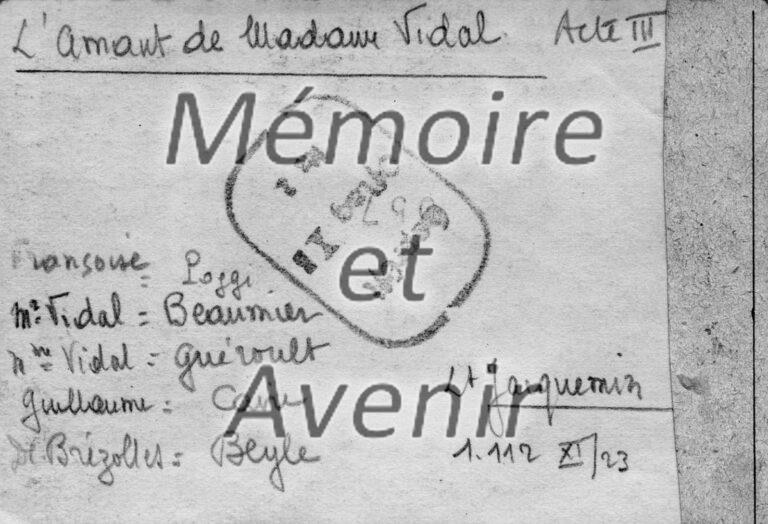 L'Amant de Madame Vidal. Acte III
Mémoire
et
Avenir
Françoise = Poggi
Mr. Vidal = Beaumier
Mme Vidal = Guéroult
Guillaume =
De Brézolles = Beyle
Lt Jacquemin
1.112 XI/23